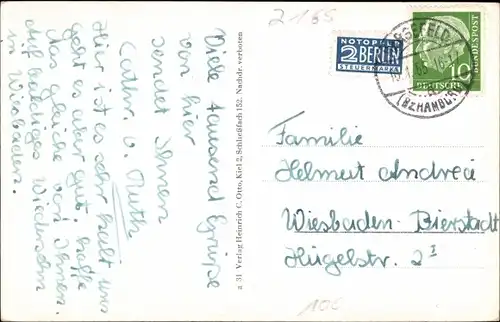 2165
Viele tausend Grüße
von hier
sendet Ihnen
Cathr. v. Ruth
Hier ist es sehr kalt uns
geht es aber gut, hoffe
das gleiche von Ihnen.
Auf baldiges Wiedersehn
in Wiesbaden.
a 31 Verlag Heinrich C. Otto, Kiel 2, Schließfach 152. Nachdr. verboten
NOTOPFER
2 BERLIN
STEUERMARKE
(Bz HAMBURG)
10
DEUTSCHE
Familie
Helmut Andrea
Wiesbaden-Bierstadt
Hügelstr. 2 I